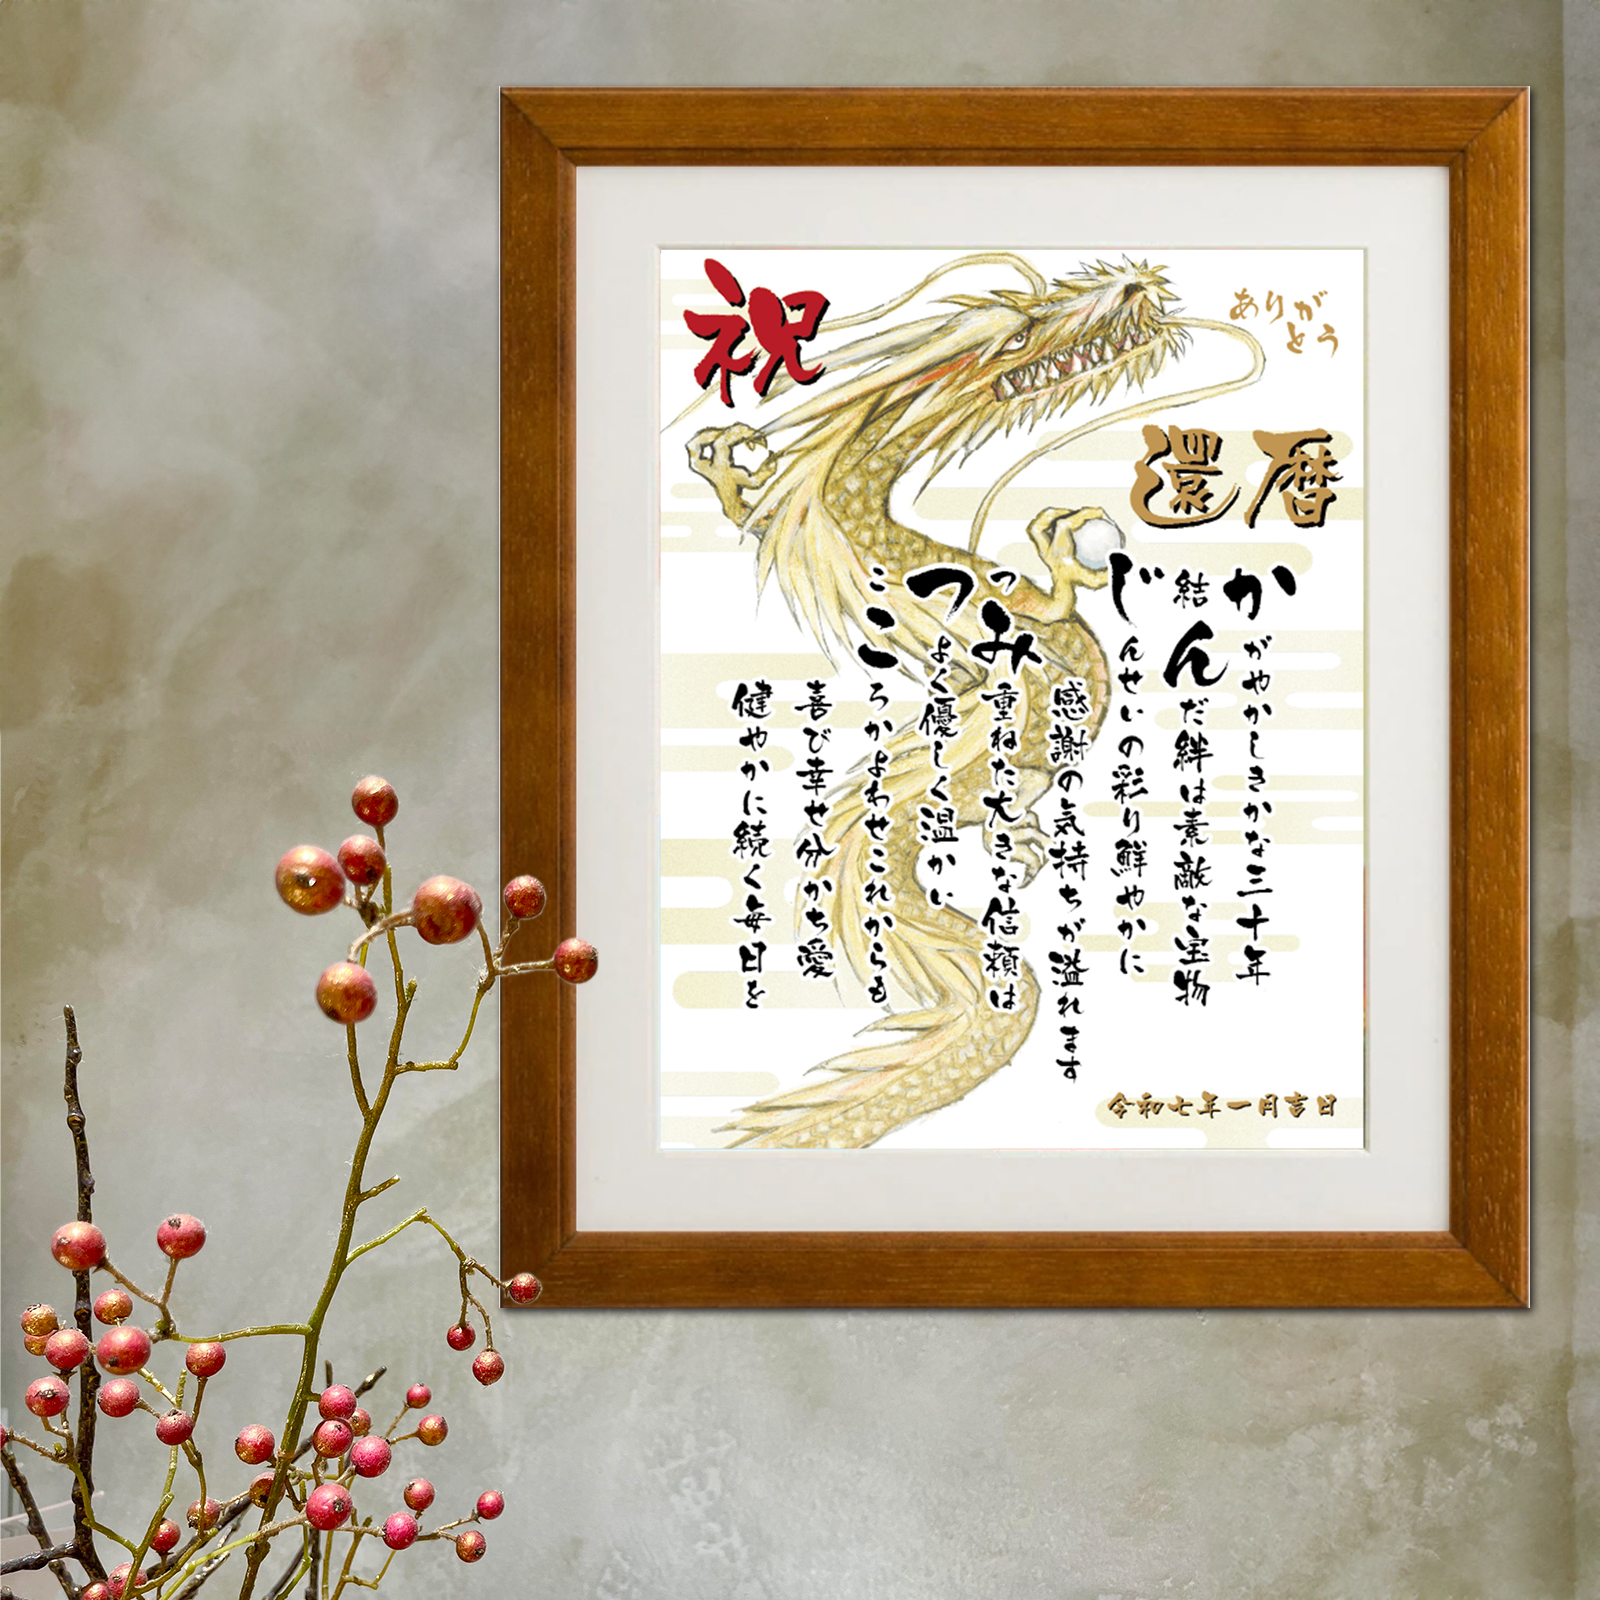 祝
ありが
とう
還暦
かがやかしきかな三十年
結んだ絆は素敵な宝物
じんせいの彩り鮮やかに
感謝の気持ちが溢れます
つみ重ねた大きな信頼は
つよく優しく温かい
こころかよわせこれからも
喜び幸せ分かち愛
健やかに続く毎日を
令和七年一月吉日